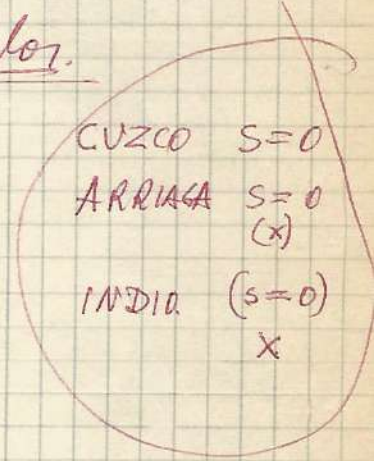 CUZCO S=0
ARRIAGA S=0
(x)
INDIO. (S=0)
X